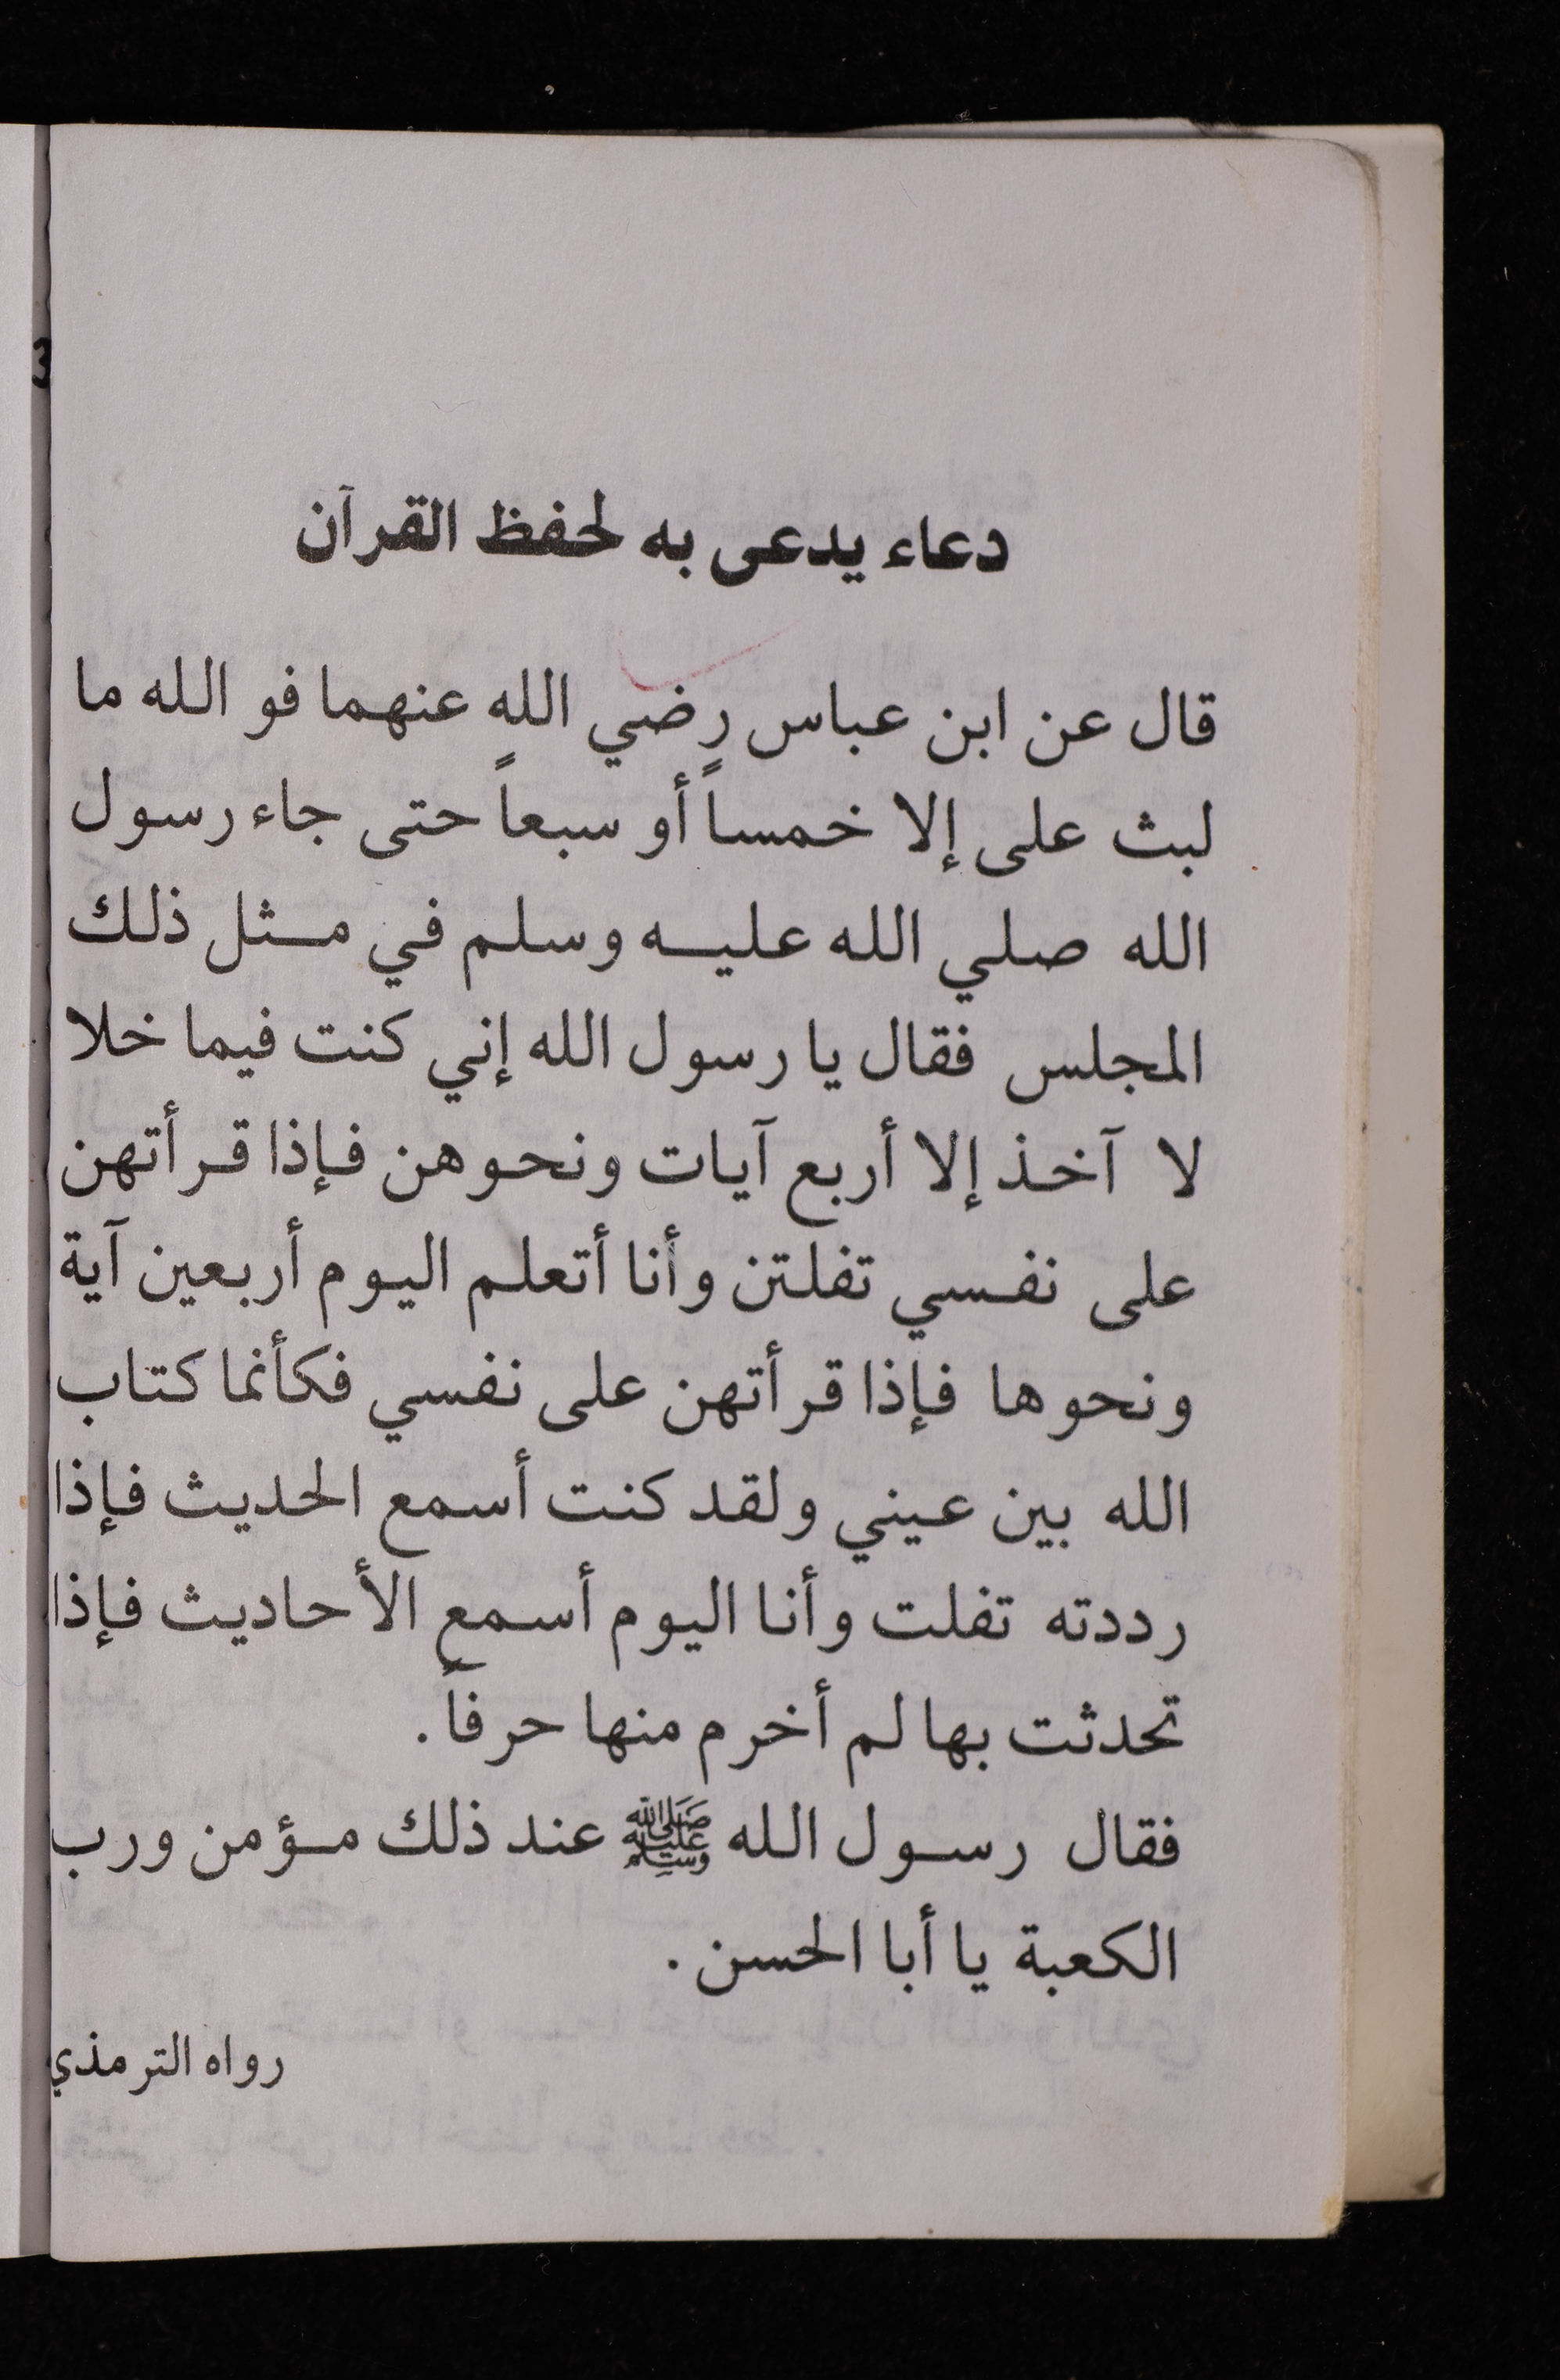 دعاء يدعى به لحفظ القرآن
قال عن ابن عباس رضي الله عنهما فو الله ما
لبث على إلا خمساً أو سبعاً حتى جاء رسول
الله صلي الله عليه وسلم في مثل ذلك
المجلس فقال يا رسول الله إني كنت فيما خلا
لا آخذ إلا أربع آيات ونحوهن فإذا قرأتهن
على نفسي تفلتن وأنا أتعلم اليوم أربعين آية
ونحوها فإذا قرأتهن على نفسي فكأنما كتاب
الله بين عيني ولقد كنت أسمع الحديث فإذا
رددته تفلت وأنا اليوم أسمع الأحاديث فإذا
تحدثت بها لم أخرم منها حرفاً.
فقال رسول الله ﷺ عند ذلك مؤمن ورب
الكعبة يا أبا الحسن.
رواه الترمذي